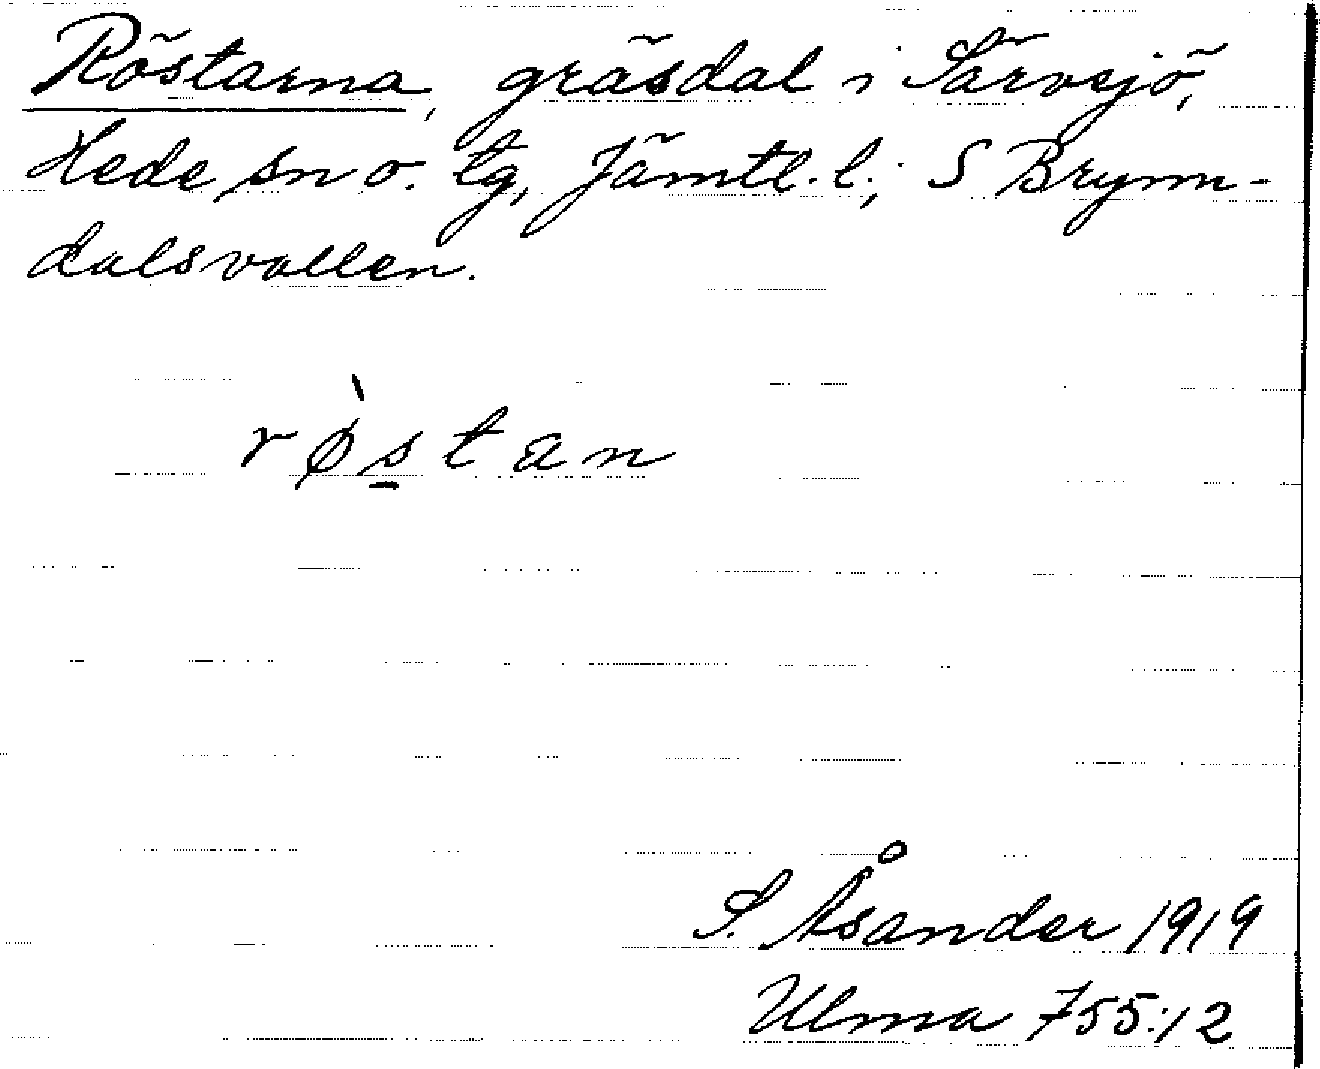 Röstarna, gräsdal i Särvsjö,
Hede sn o. tg, Jämtl. l.; S Brynn-
dalsvallen.
rø̀s̱tan
S. Åsander 1919
Ulma 755:12